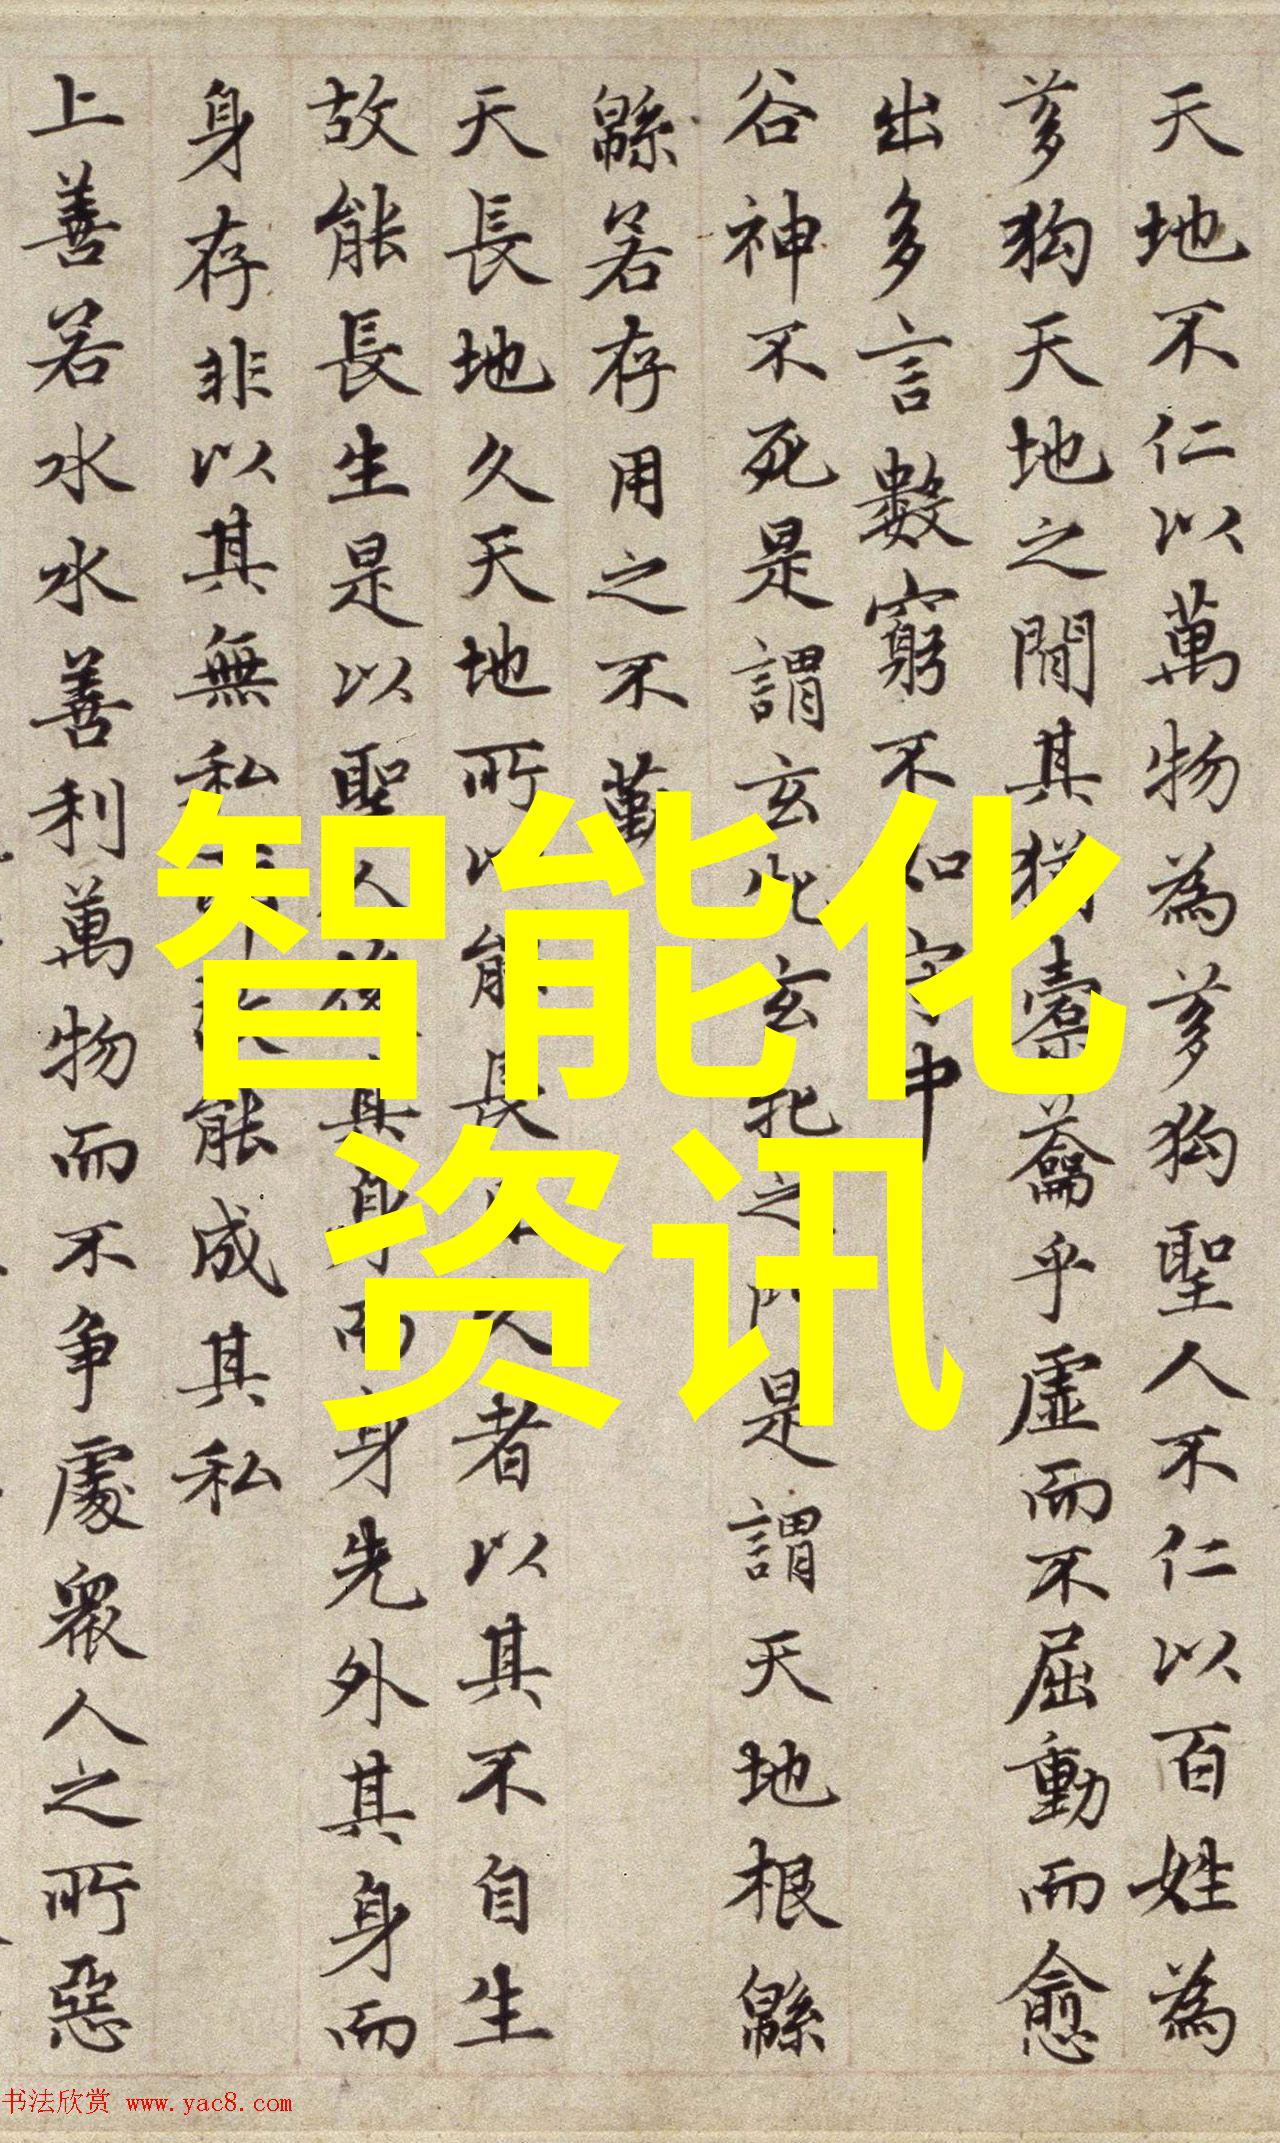 天地不仁以萬物為芻狗聖人不仁以百姓為
芻狗天地之間其猶橐籥乎虛而不屈動而愈
出多言數窮不如守中
谷神不死是謂玄牝玄牝之門是謂天地根緜
緜若存用之不勤
天長地久天地所以能長且久者以其不自生
故能長生是以聖人後其身而身先外其身而
身存非以其無私故能成其私
上善若水水善利萬物而不争處眾人之所惡
智能化
资讯
书法欣赏 www.yac8.com